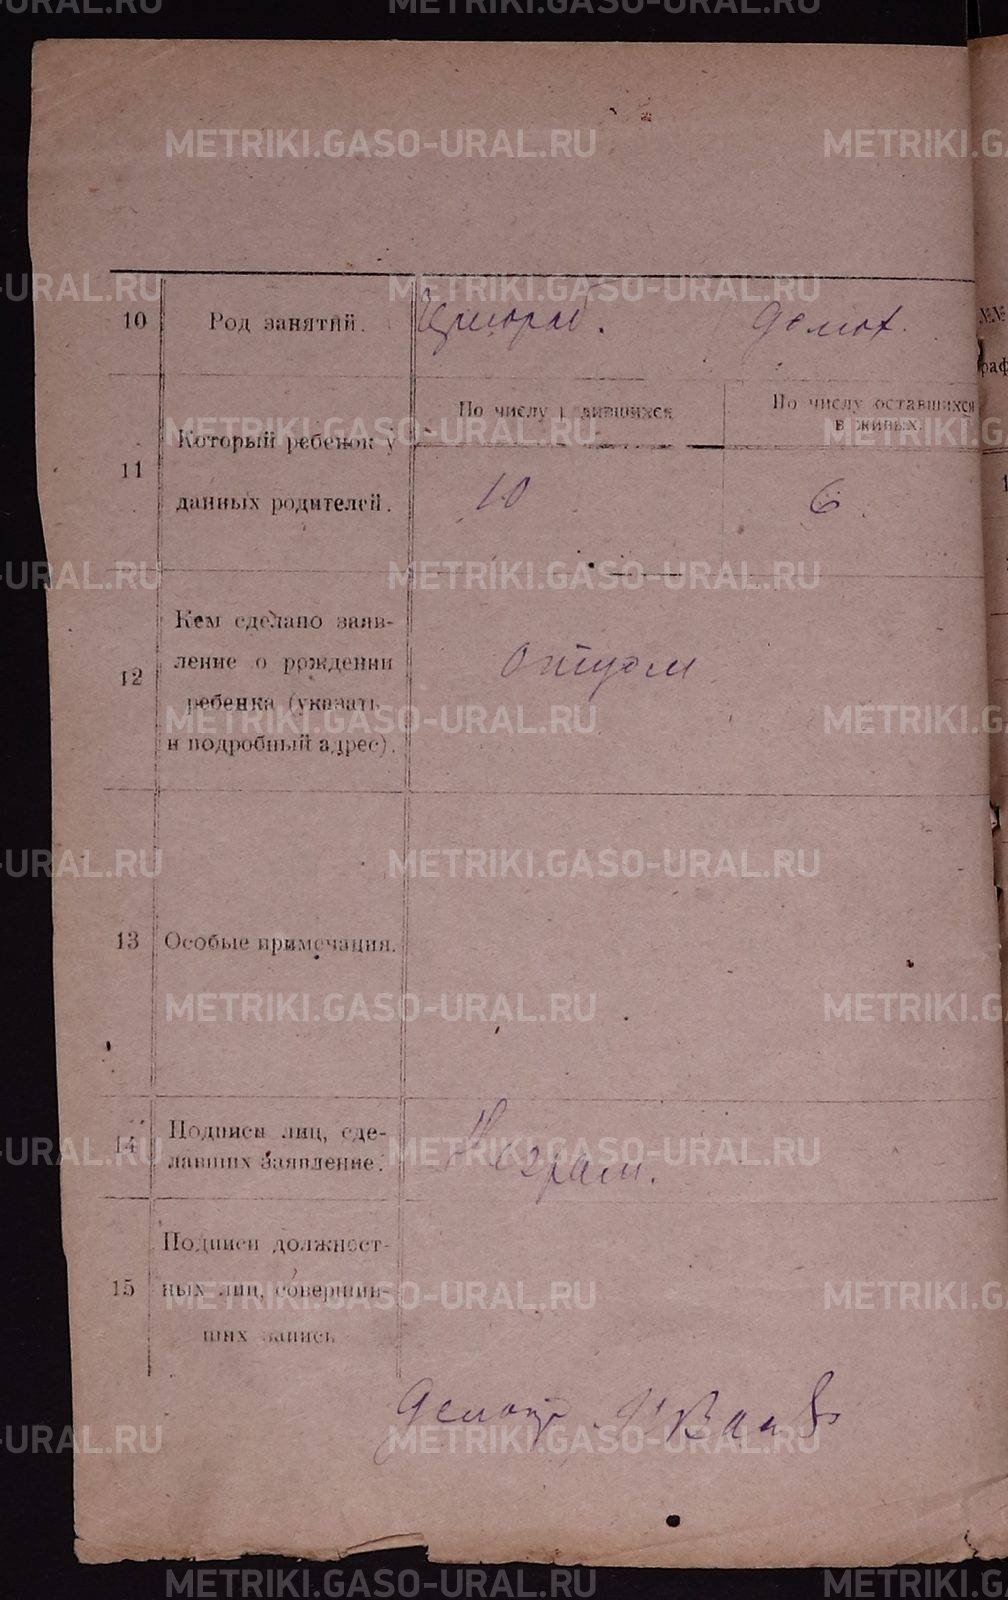 METRIKI.GASO-URAL.RU
10 Род занятий. Чернораб. Домох.
11 Который ребенок у данных родителей.
По числу родившихся
По числу оставшихся
в живых.
10 6
12 Кем сделано заяв-
ление о рождении
ребенка (указать
и подробный адрес).
Отцом
13 Особые примечания.
14 Подписи лиц, сде-
лавших заявление.
Неграм.
15 Подписи должност-
ных лиц, совершив-
ших запись